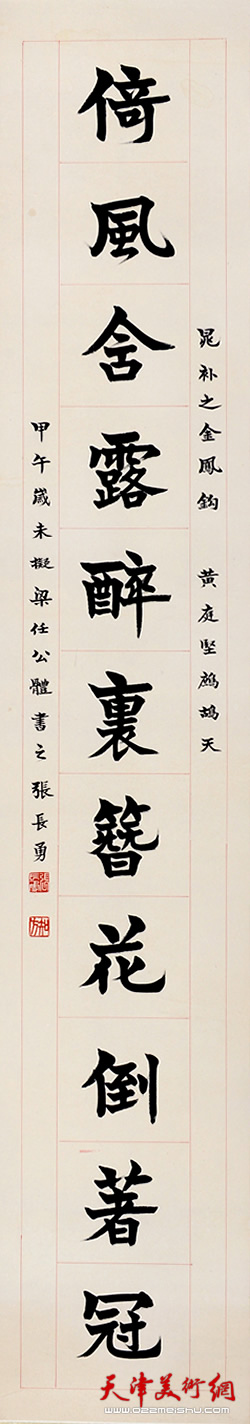 倚風含露醉裏簪花倒著冠
晁补之金鳳鈎 黃庭堅鹧鸪天
甲午嵗末擬梁任公體書之張長勇
天津美術網
www.022meishu.com